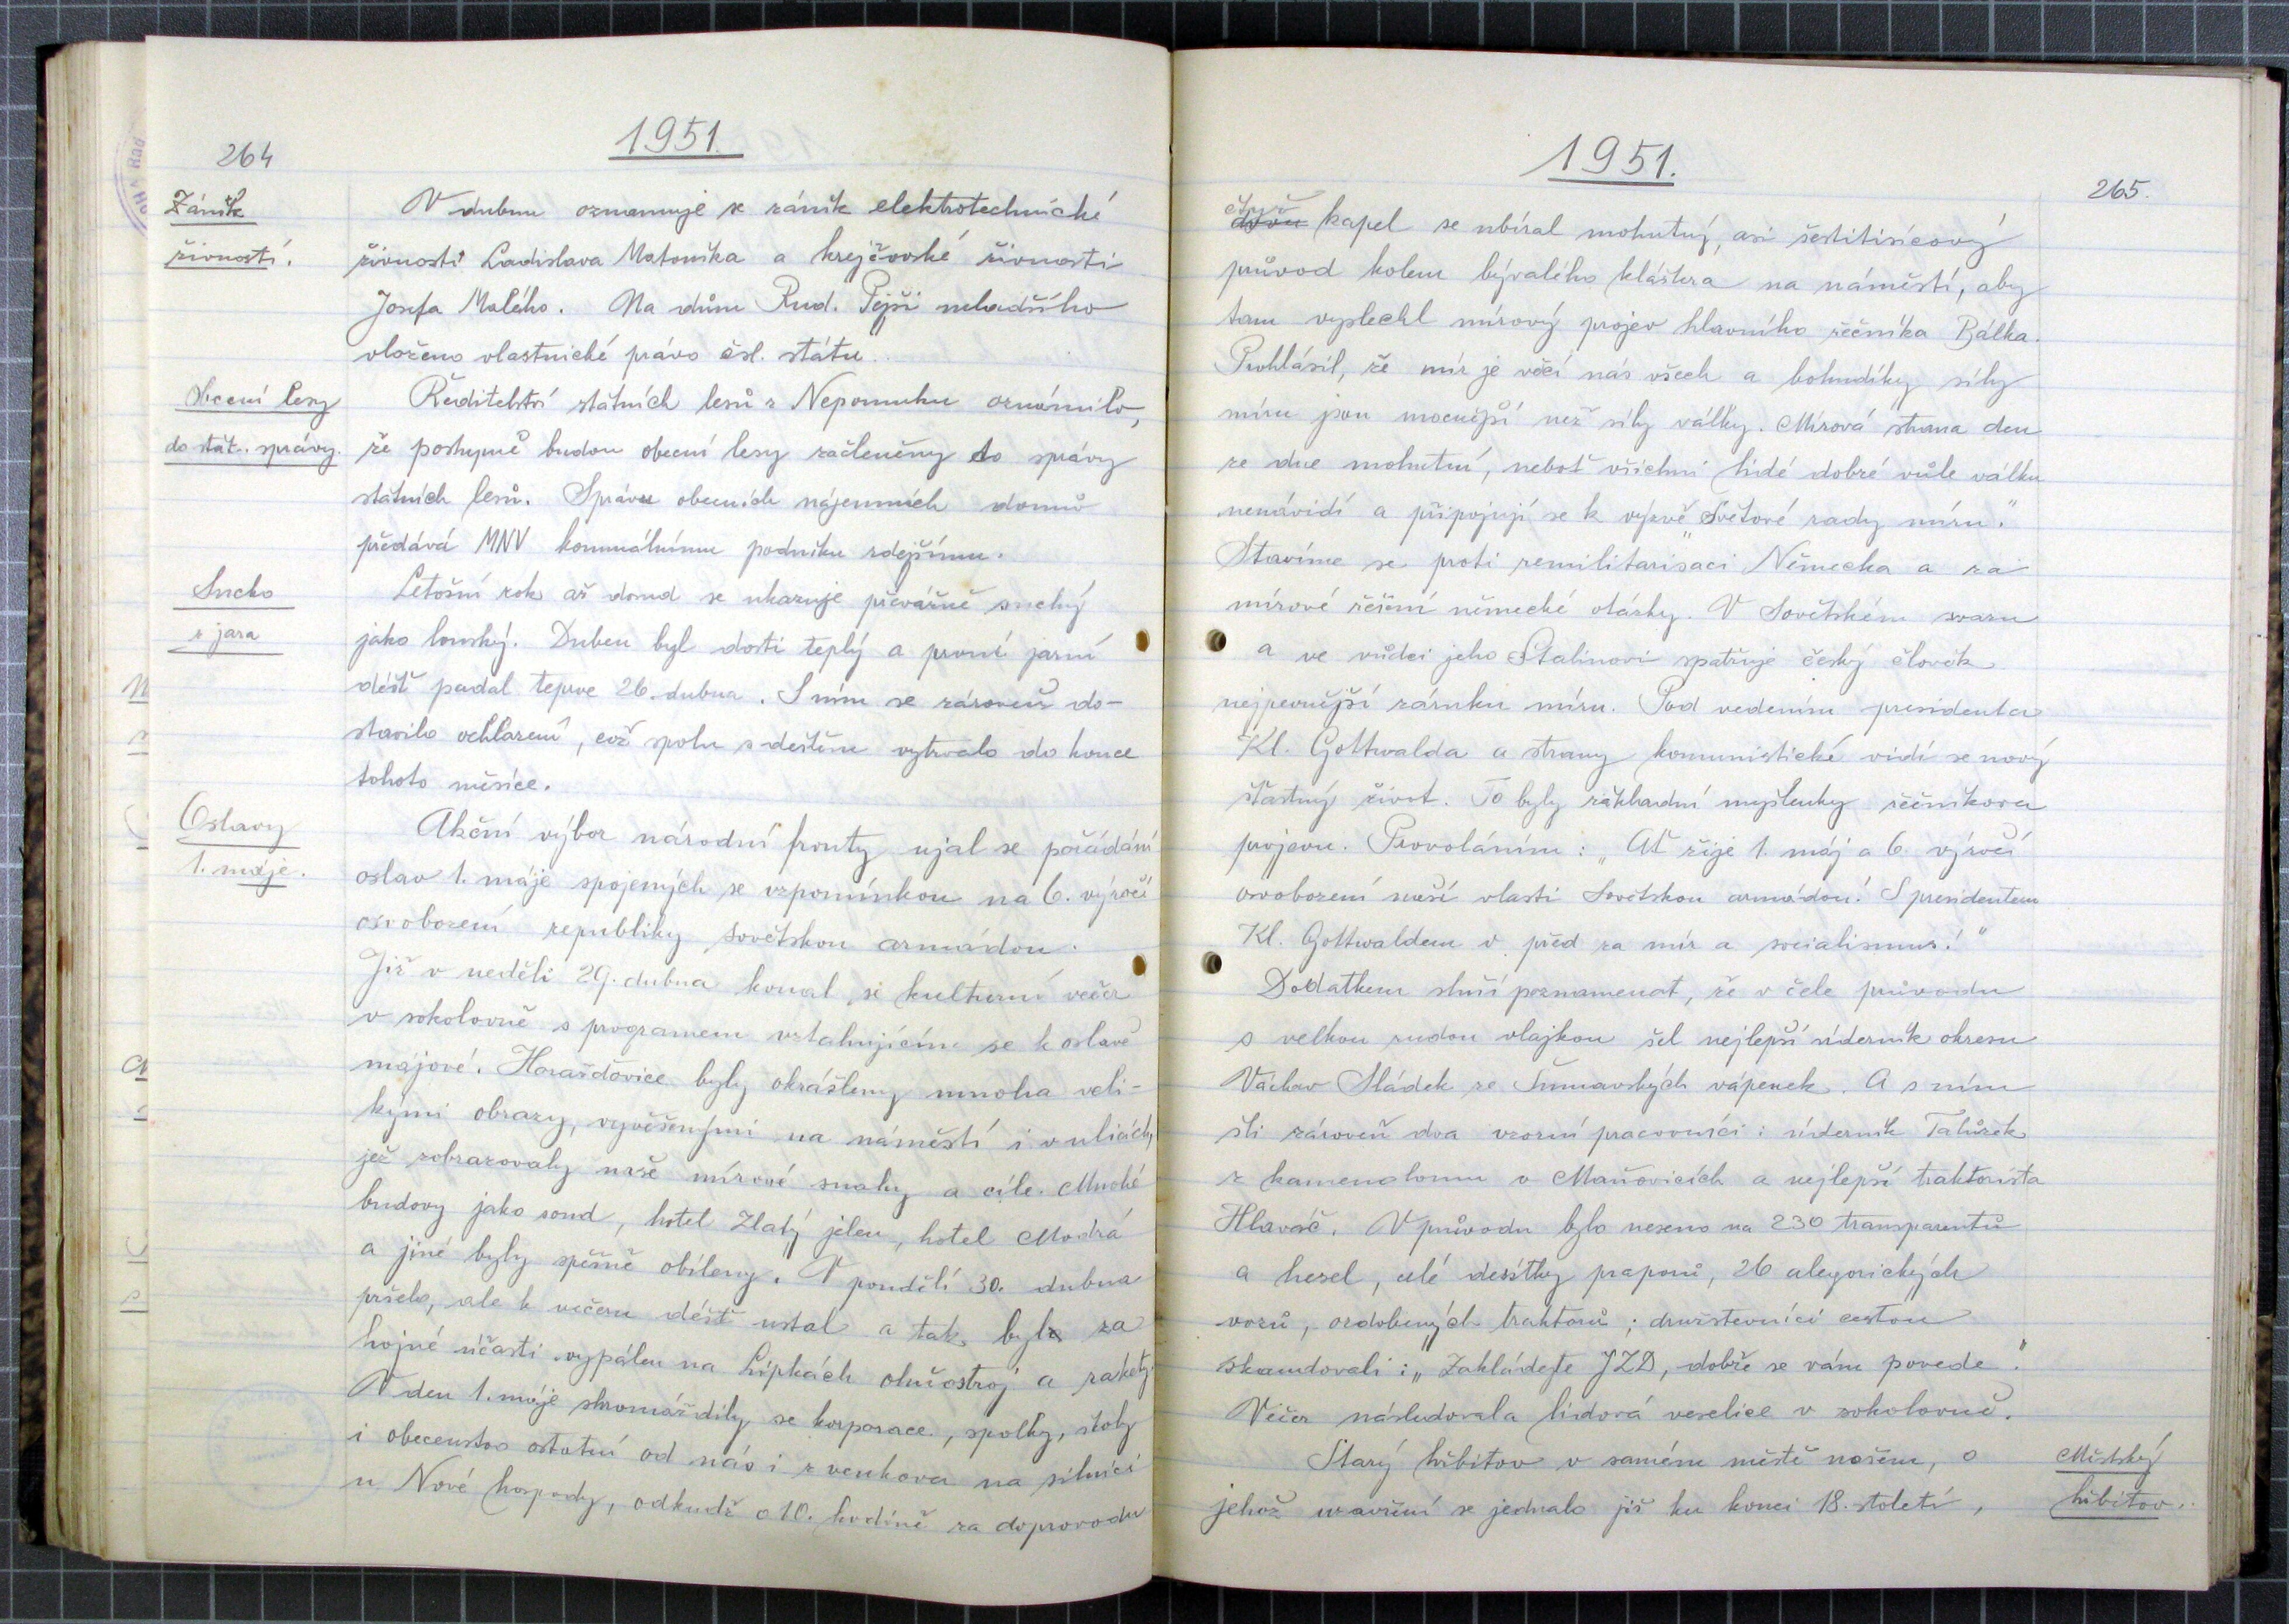 264
1951.
Zánik
živností.
V dubnu oznamuje se zánik elektrotechnické
živnosti Ladislava Matouška a krejčovské živnosti
Josefa Malého. Na dům Rud. Pejši mladšího
vloženo vlastnické právo čsl. státu.
Obecní lesy
do stát. správy.
Ředitelství státních lesů z Nepomuku oznámilo,
že postupně budou obecní lesy začleněny do správy
státních lesů. Správu obecních nájemních domů
předává MNV komunálnímu podniku zdejšímu.
Sucho
z jara
Letošní rok až dosud se ukazuje převážně suchý
jako loňský. Duben byl dosti teplý a první jarní
déšť padal teprve 26. dubna. S ním se zároveň do-
stavilo ochlazení, což spolu s deštěm vytrvalo do konce
tohoto měsíce.
Oslavy
1. máje.
Akční výbor národní fronty ujal se pořádání
oslav 1. máje spojených se vzpomínkou na 6. výročí
osvobození republiky sovětskou armádou.
Již v neděli 29. dubna konal se kulturní večer
v sokolovně s programem vztahujícím se k oslavě
májové. Horažďovice byly okrášleny mnoha veli-
kými obrazy, vyvěšenými na náměstí i v ulicích,
jež zobrazovaly naše mírové snahy a cíle. Mnohé
budovy jako soud, hotel Zlatý jelen, hotel Modrá
a jiné byly spěšně obíleny. V pondělí 30. dubna
pršelo, ale k večeru déšť ustal a tak byl za
hojné účasti vypálen na Lipkách ohňostroj a rakety.
V den 1. máje shromáždily se korporace, spolky, školy
i obecenstvo ostatní od nás i z venkova na silnici
u Nové hospody, odkudž o 10. hodině za doprovodu
1951.
265.
čtyř
dvou kapel se ubíral mohutný, asi šestitisícový
průvod kolem bývalého kláštera na náměstí, aby
tam vyslechl mírový projev hlavního řečníka Bálka.
Prohlásil, že mír je věcí nás všech a bohudíky síly
míru jsou mocnější než síly války. Mírová strana den
ze dne mohutní, neboť všichni lidé dobré vůle válku
nenávidí a připojují se k výzvě „Světové rady míru."
Stavíme se proti remilitarisaci Německa a za
mírové řešení německé otázky. V Sovětském svazu
a ve vůdci jeho Stalinovi spatřuje český člověk
nejpevnější záruku míru. Pod vedením presidenta
Kl. Gottwalda a strany komunistické vidí se nový
šťastný život. To byly základní myšlenky řečníkova
projevu. Provoláním: „Ať žije 1. máj a 6. výročí
osvobození naší vlasti Sovětskou armádou! S presidentem
Kl. Gottwaldem v před za mír a socialismus!"
Dodatkem sluší poznamenat, že v čele průvodu
s velkou rudou vlajkou šel nejlepší úderník okresu
Václav Sládek ze Šumavských vápenek. A s ním
šli zároveň dva vzorní pracovníci: úderník Talůžek
z kamenolomu v Maňovicích a nejlepší traktorista
Hlaváč. V průvodu bylo neseno na 230 transparentů
a hesel, celé desítky praporů, 26 alegorických
vozů, ozdobených traktorů; družstevníci cestou
skandovali: „Zakládejte JZD, dobře se vám povede".
Večer následovala lidová veselice v sokolovně.
Městský
hřbitov.
Starý hřbitov v samém městě našem, o
jehož uzavření se jednalo již ku konci 18. století,